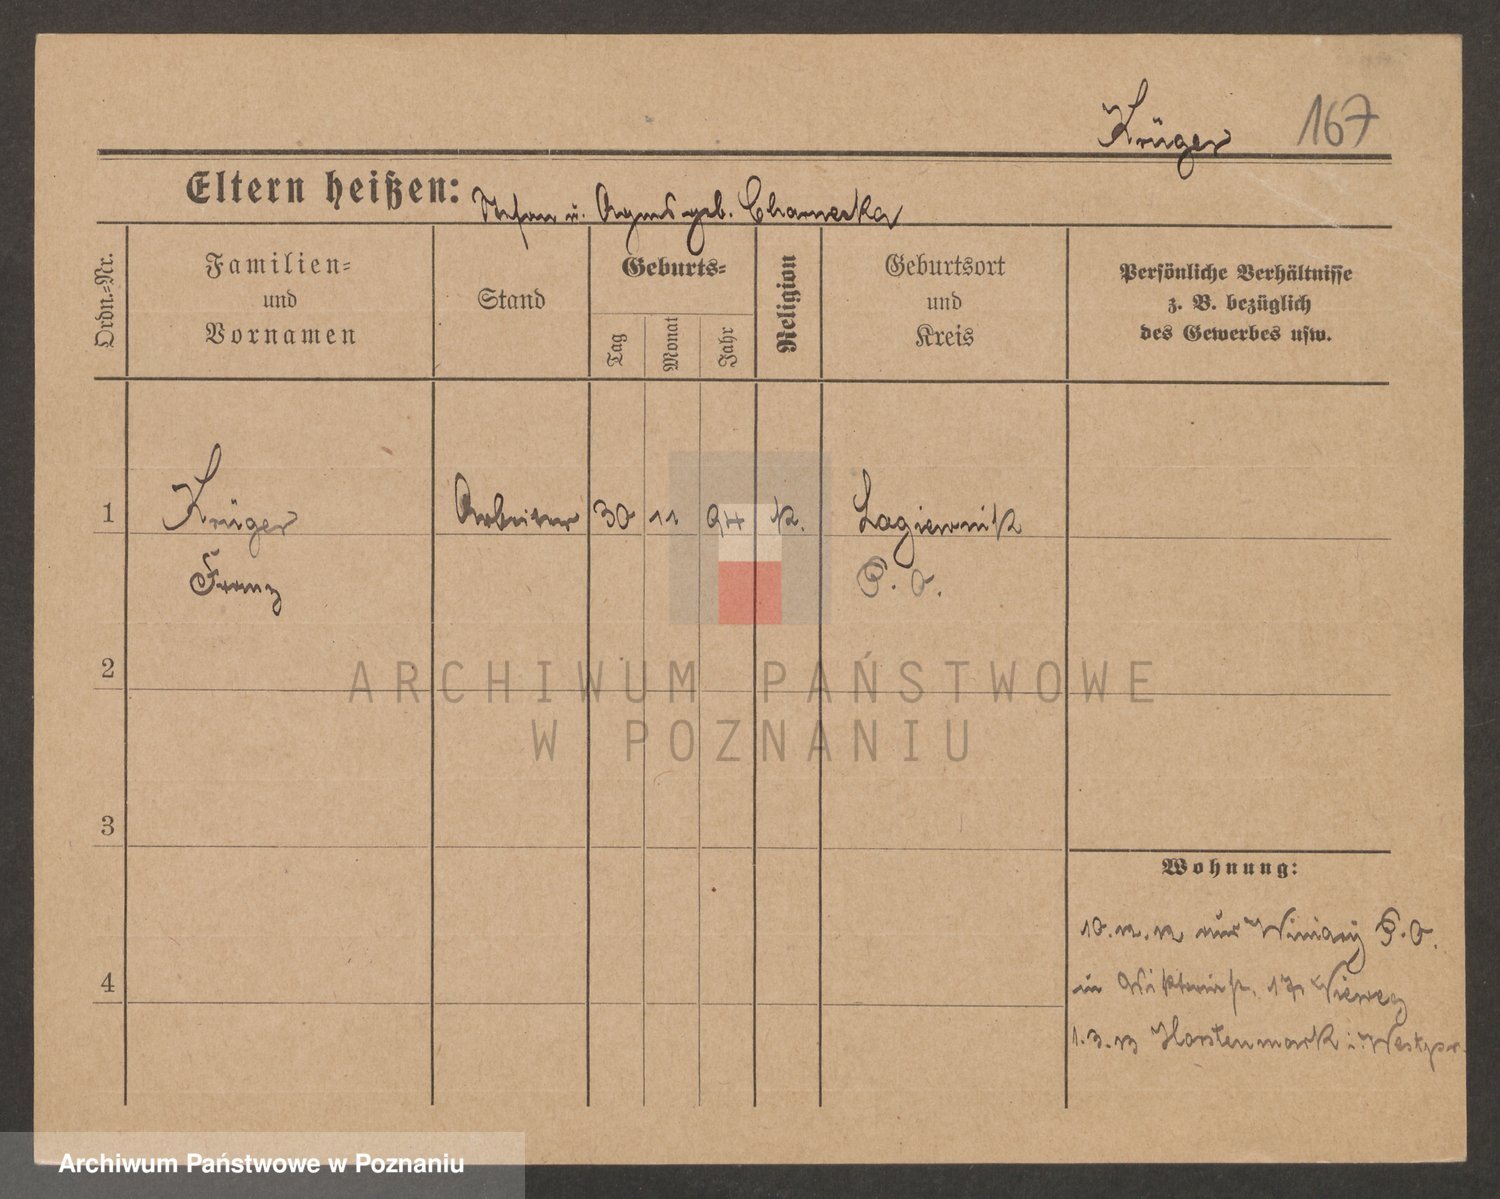 Krüger 167
Eltern heißen: Stefan u. Agnes geb. Charnecka
Ordn.-Nr.
Familien-
und
Vornamen
Stand
Geburts-
Tag
Monat
Jahr
Religion
Geburtsort
und
Kreis
Persönliche Verhältnisse
z. B. bezüglich
des Gewerbes usw.
1 Krüger Arbeiter 30 11 94 k. Lagiewnik
Franz P. O.
2
3
4
Wohnung:
10. 12. 12 aus Winiary P. O.
in 17 Vieweg
1. 3. 13 Hartenmark i. Westpr.
ARCHIWUM PAŃSTWOWE
W POZNANIU
Archiwum Państwowe w Poznaniu